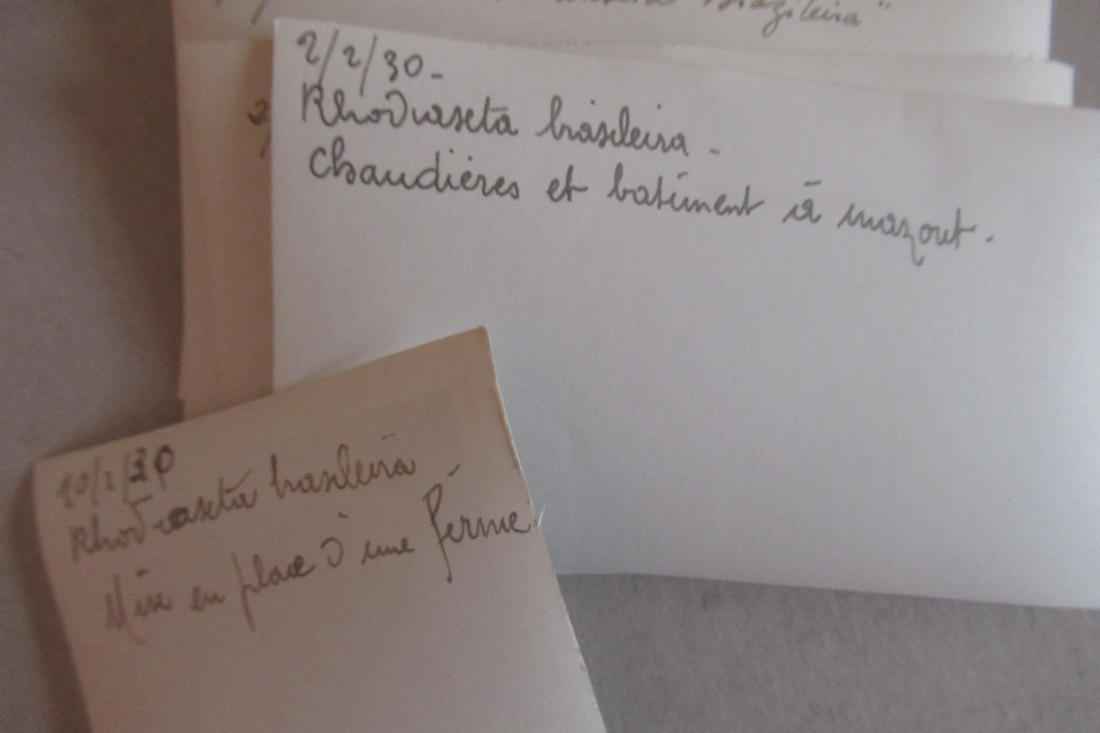 Brazileira"
2/2/30-
Rhodiaseta brasileira -
Chaudières et batiment à mazout.
10/2/30
Rhodiaseta brasileira -
Mise en place d'une ferme